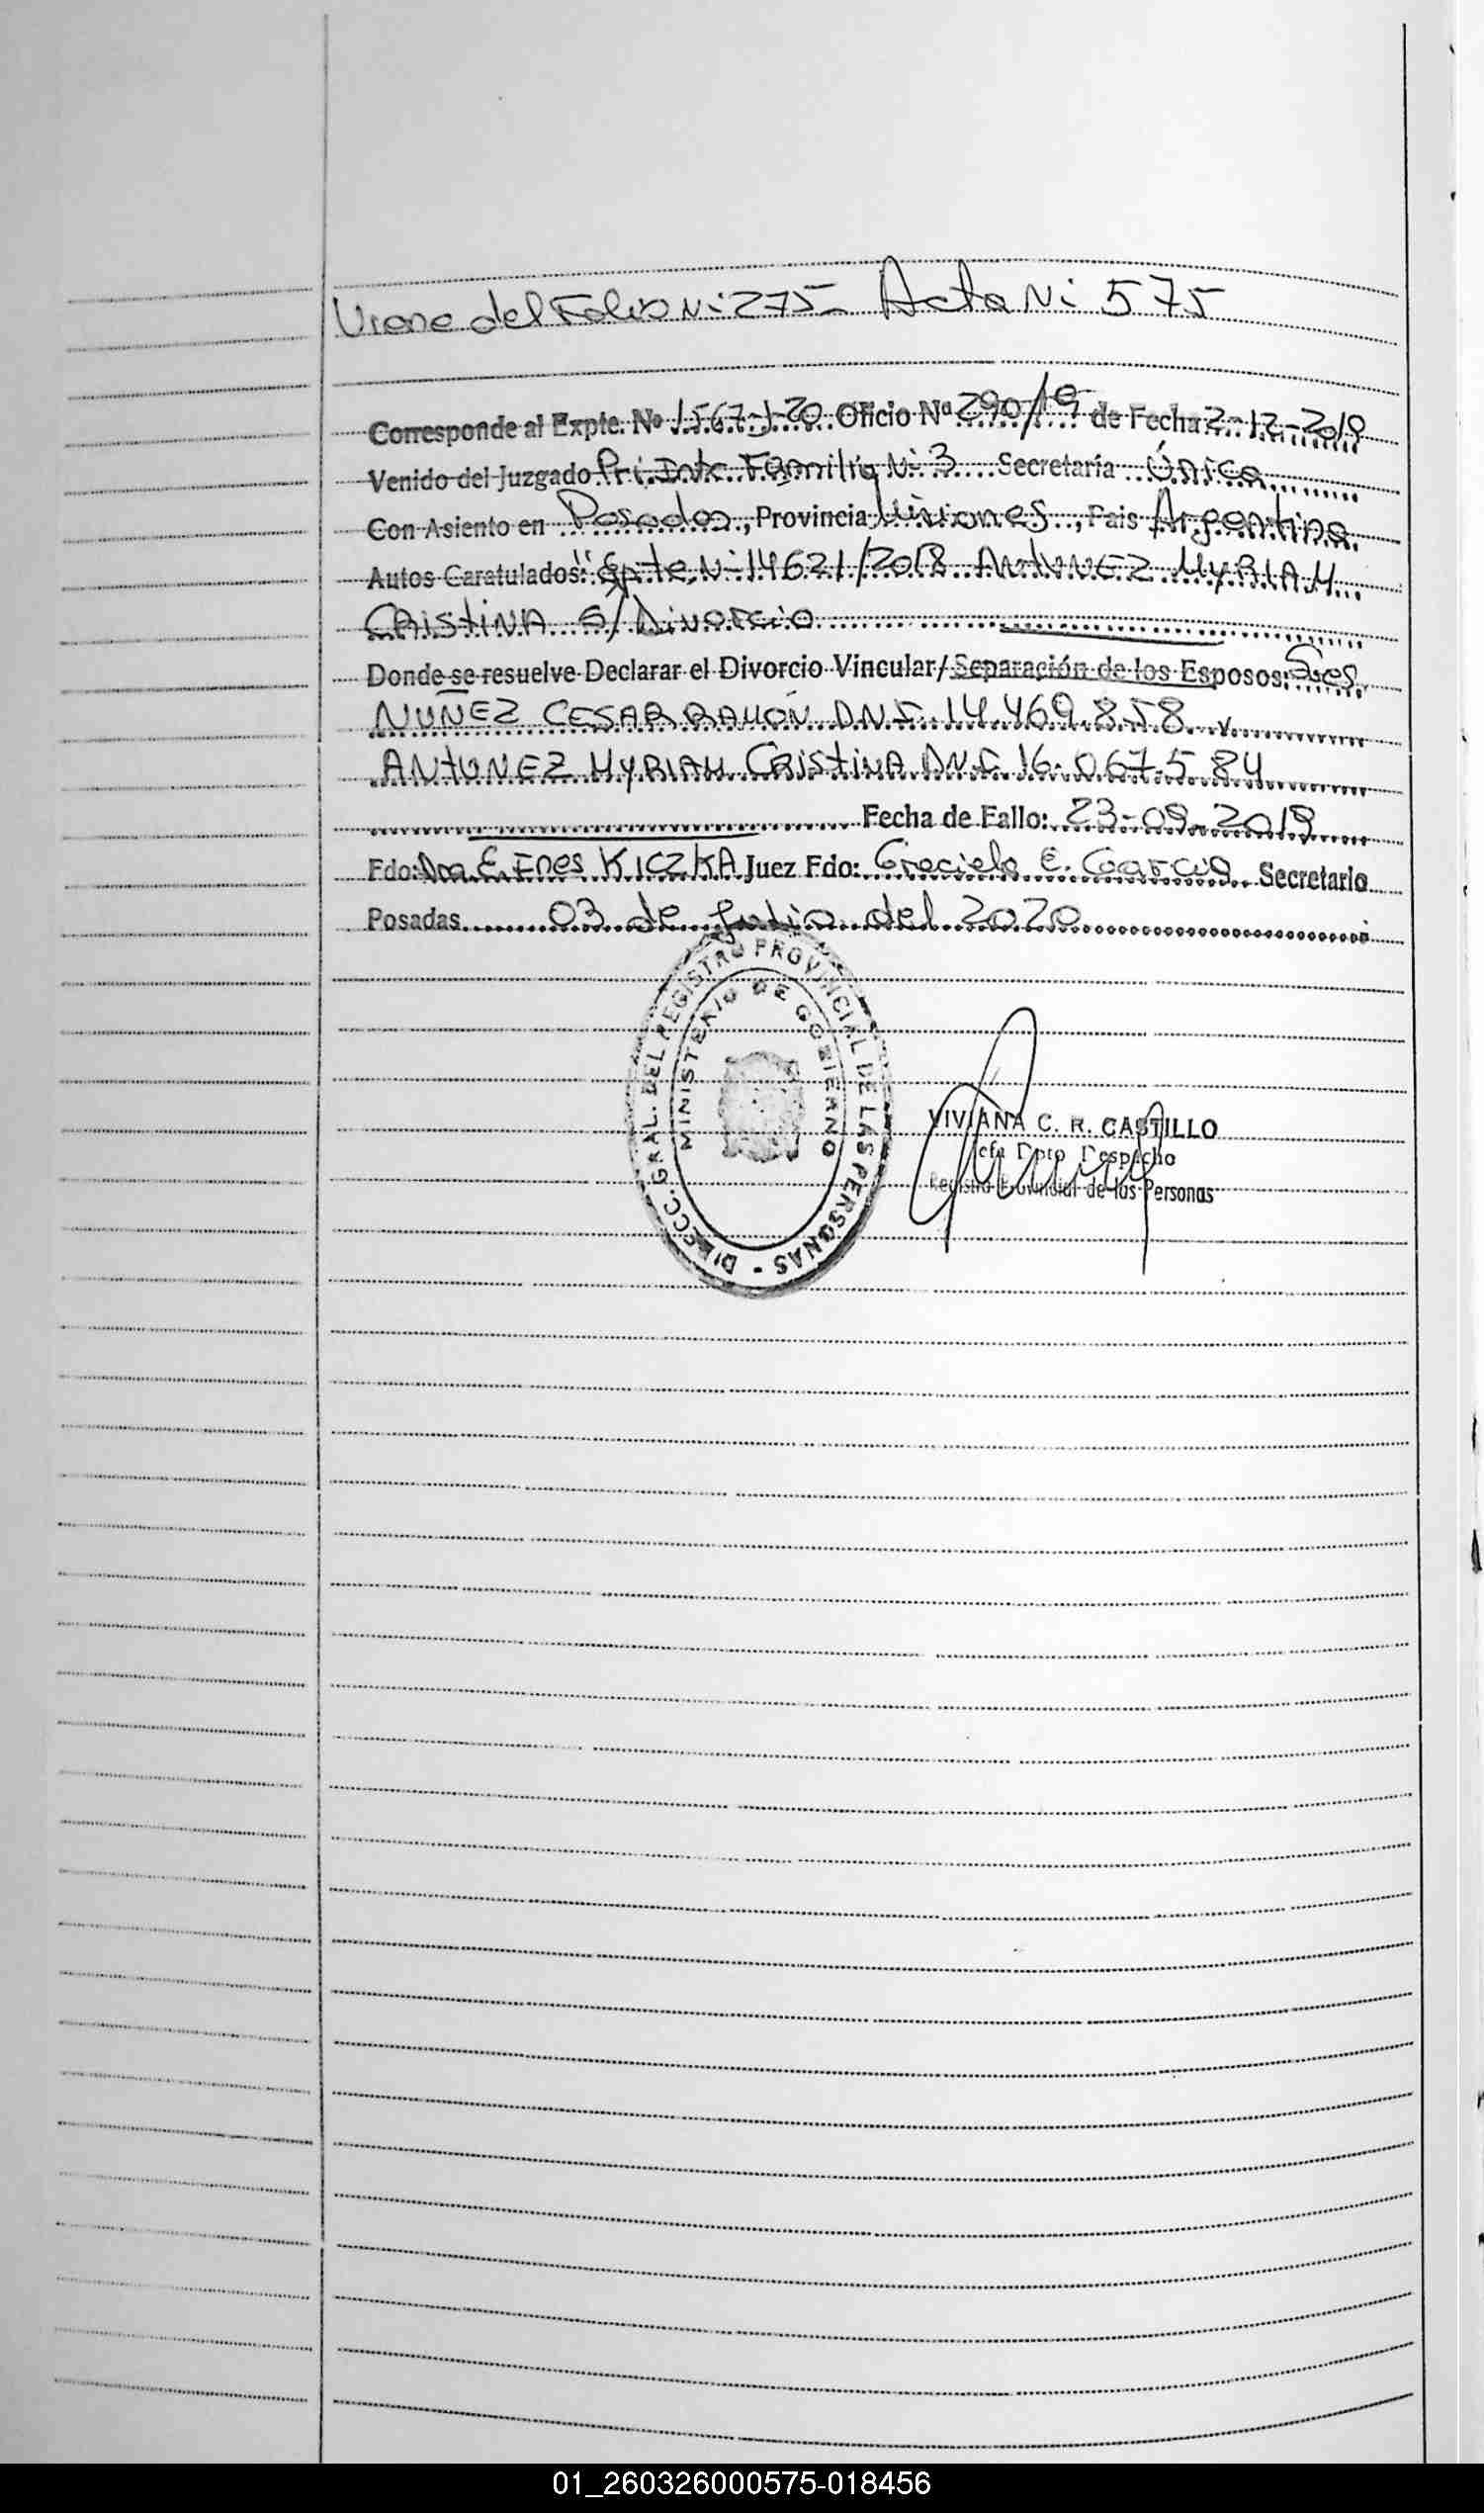 Viene del Folio Nº 275- Acta Nº 575
Corresponde al Expte. Nº 1567-J-20 Oficio Nª 290/19 de Fecha 2-12-2019
Venido del Juzgado Pri. Intc. Familia Nº 3 Secretaría Única
Con Asiento en Posadas, Provincia Misiones, Pais Argentina
Autos Caratulados: "Expte. Nº 14621/2018 ANTUNEZ MYRIAM
CRISTINA S/ Divorcio
Donde se resuelve Declarar el Divorcio Vincular/Separación de los Esposos: Sres
NUÑEZ CESAR RAMÓN D.N.I. 14.469.858 y
ANTUNEZ MYRIAM CRISTINA D.N.I. 16.067.584
Fecha de Fallo: 23-09-2019
Fdo: Dra E. Ines KICZKA Juez Fdo: Graciela E. Garcia Secretario
Posadas 03 de Julio del 2020
DIRECC. GRAL. DEL REGISTRO PROVINCIAL DE LAS PERSONAS -
MINISTERIO DE GOBIERNO
VIVIANA C. R. CASTILLO
Jefa Dpto Despacho
Registro Provincial de las Personas
01_260326000575-018456